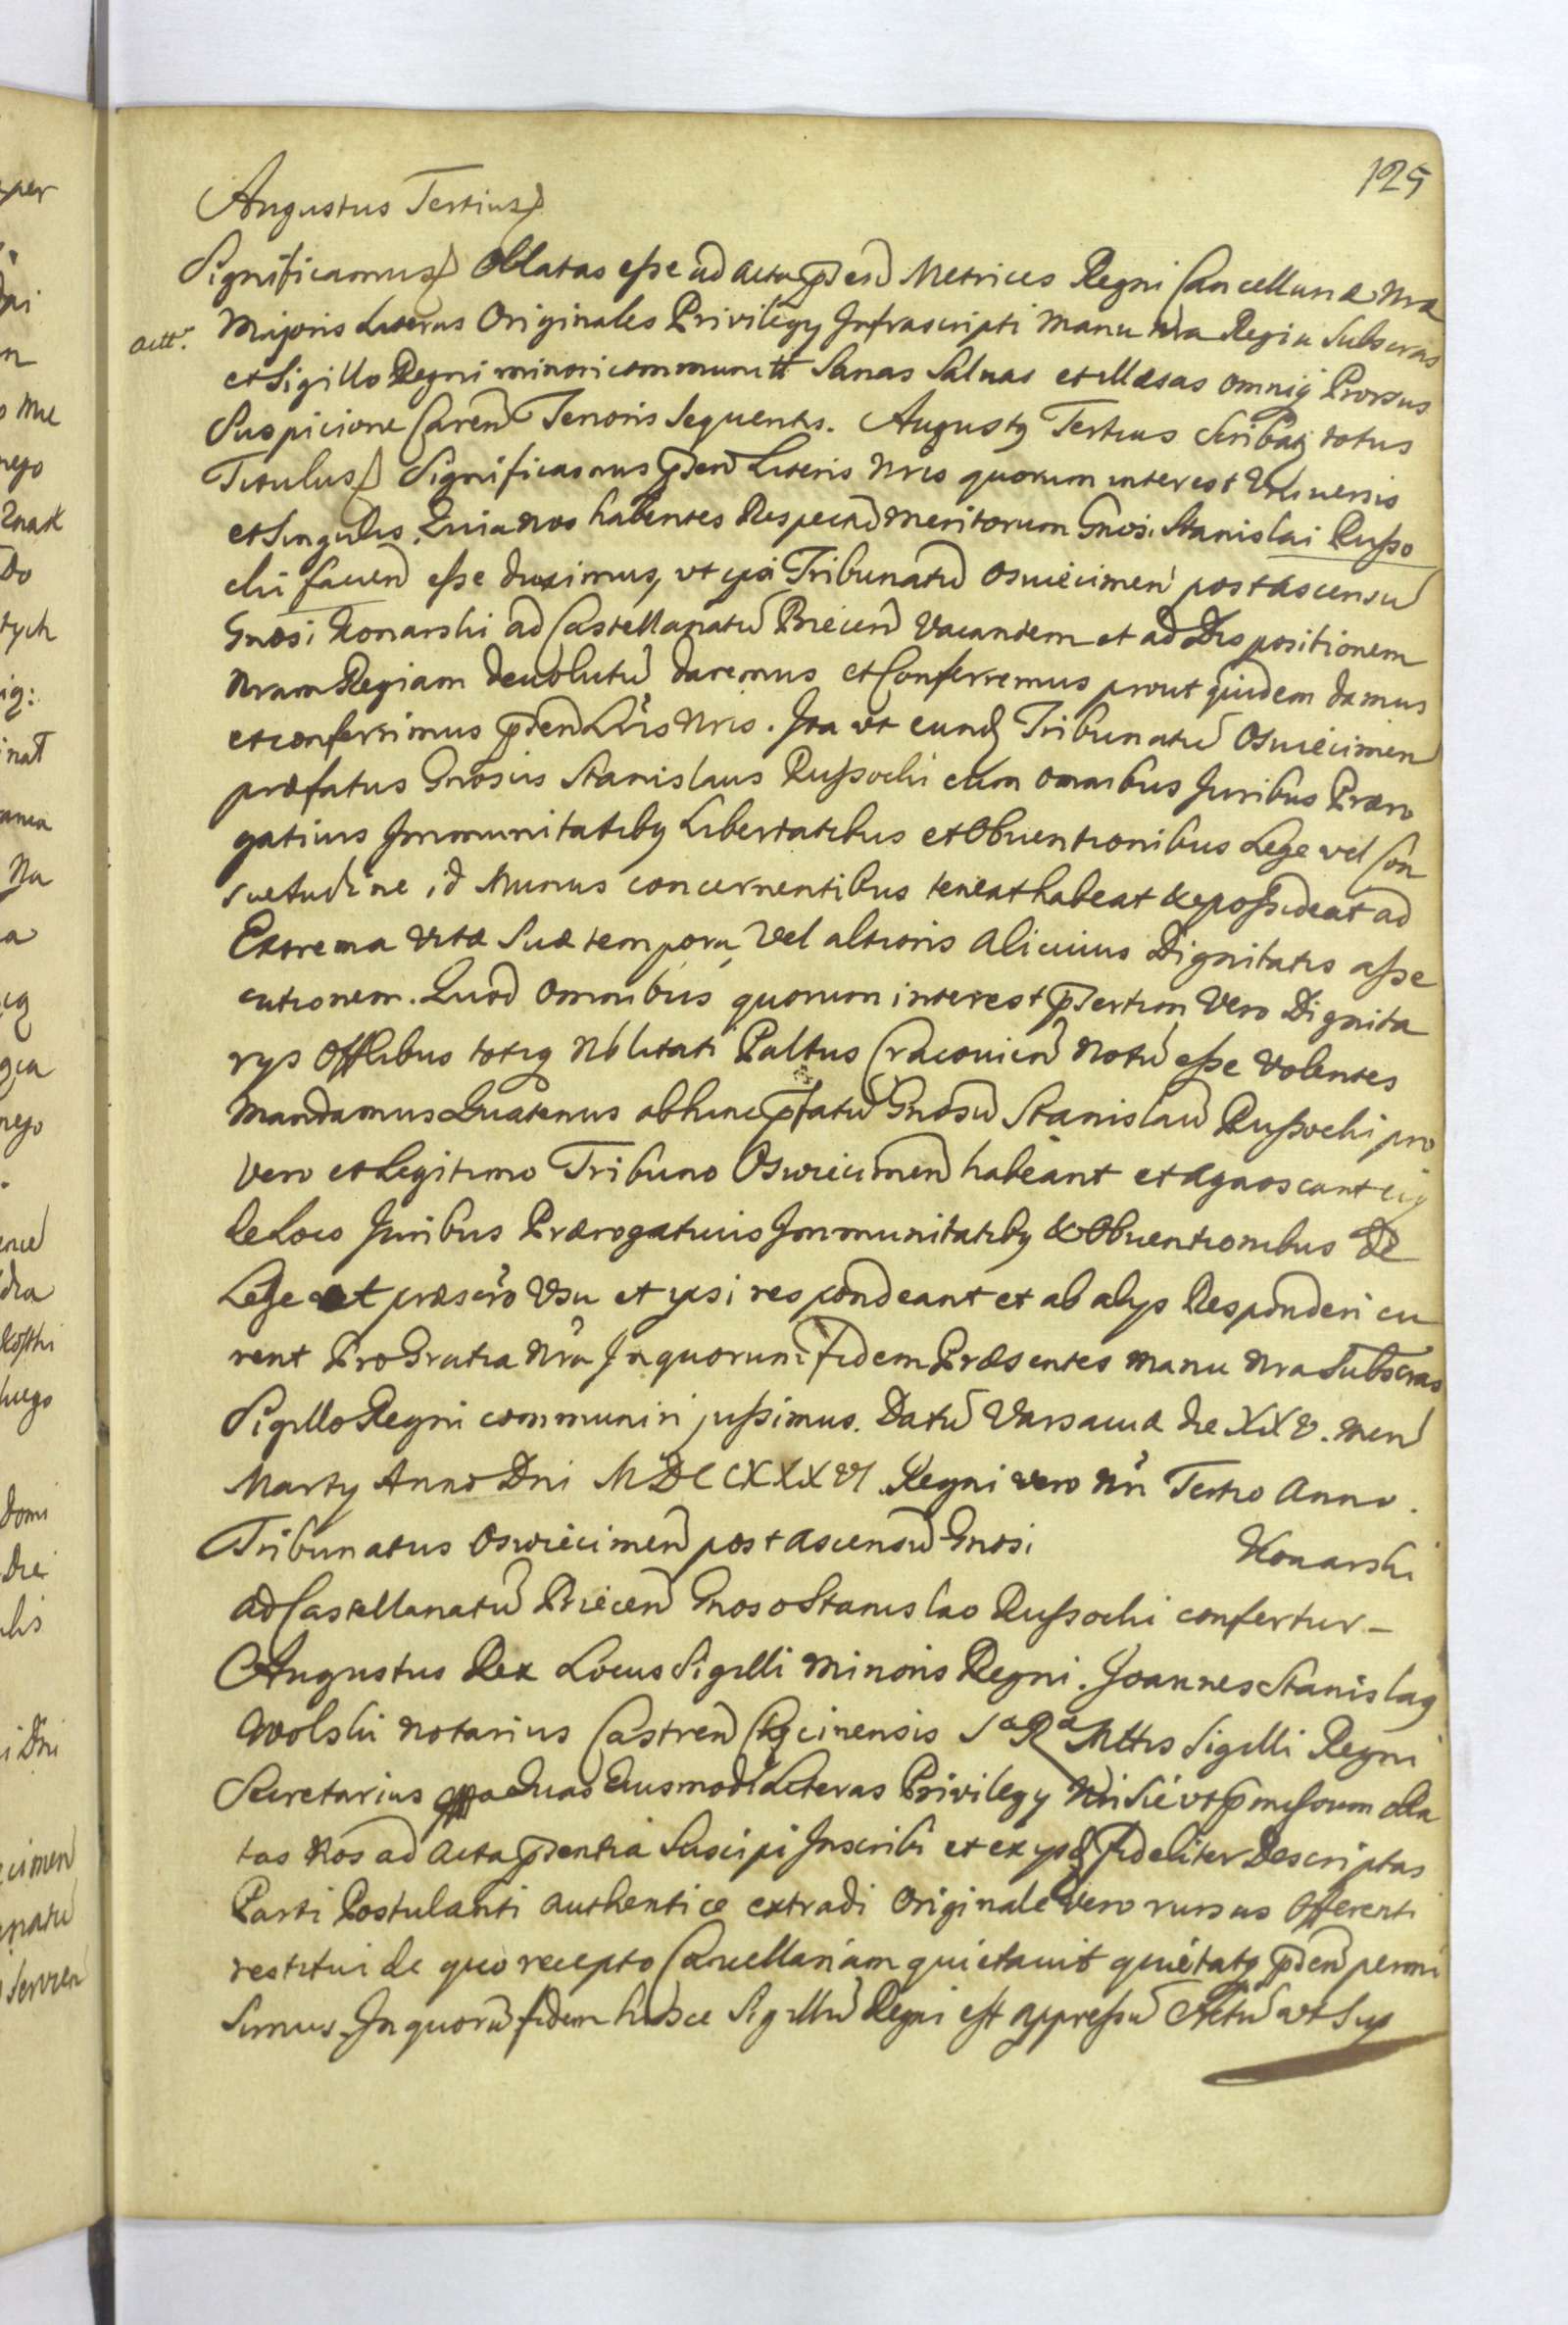 125
Augustus Tertius
Significamus Oblatas esse ad Acta pñ Metrices Regni Cancellariæ Nræ
actt.
Majoris Literas Originales Privilegy Infrascripti Manu Nra Regia Subscras
et Sigillo Regni minori communitt Sanas Saluas et illæsas omniq Prorsus
Suspicione Caren Tenoris Sequentis. Augusty Tertius Scribat totus
Titulus Significamus pñen Literis Nris quorum interest Vniuersis
et Singulis. Quia nos habentes Respectũ meritorum Gnosi Stanislai Russo
cki faciend esse duximus, vt ipsi Tribunatũ Osuiecimen post ascensũ
Gnosi Konarski ad Castellanatũ Biecen Vacantem et ad Dispositionem
Nram Regiam deuolutũ daremus et Conferremus prout quidem damus
et conferrimus pñen Lris Nris. Ita vt eund Tribunatũ Osuiecimen
præfatus Gnosus Stanislaus Russocki cum omnibus Juribus Præro
gatiuis Immunitatiby Libertatibus et Obuentionibus Lege vel Con
suetudine id Munus concernentibus teneat habeat & possideat ad
Extrema vitæ Suæ tempora, Vel altioris alicuius Dignitatis asse
cutionem. Quod omnibus quorum interest pñsertim Vero Dignita
rys Offlibus totiq Nblitati Palttus Cracouien Notũ esse Volentes
Mandamus Quatenus abhinc pfatũ Gnosũ Stanislaũ Russocki pro
Vero et Legitimo Tribuno Oswiecimen habeant et agnoscant eiq
de Loco Juribus Prærogatiuis Immunitatiby & Obuentionibus de
Lege et præscro Vsu et ipsi respondeant et ab alys Responderi cu
rent Pro Gratia Nra In quorum fidem Præsentes manu Nra Subscras
Sigillo Regni communiri jussimus. Datũ Varsauiæ die XXV. men
Marty Anno Dni MDCCXXXVI Regni vero Nri Tertio Anno.
Tribunatus Oswiecimen post ascensũ Gnosi Konarski
ad Castellanatũ Biecen Gnoso Stanislao Russocki confertur-
Augustus Rex Locus Sigilli Minoris Regni. Joannes Stanislaq
Wolski Notarius Castren Sæ Ræ Mttis Sigilli Regni
Secretarius quas Eiusmodi Literas Privilegy Nri Sic vt pmissum obla
tas Nos ad Acta pñentia Suscipi Inscribi et ex ysd fideliter Descriptas
Parti Postulanti authentice extradi Originale Vero rursus Offerenti
restitui de quo recepto Cancellariam quietauit quietatq pñen permi
simus. In quorũ fidem hisce Sigillũ Regni est appressũ Actũ vt Sup